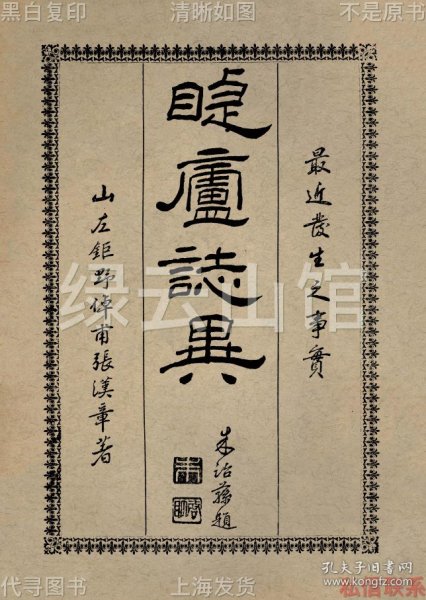 黑白复印 清晰如图 不是原书
最近發生之事實
睫廬誌異
朱治題
山左鉅野倬甫張漢章著
绿云山馆
代寻图书 上海发货 私信联系
孔夫子旧书网
www.kongfz.com